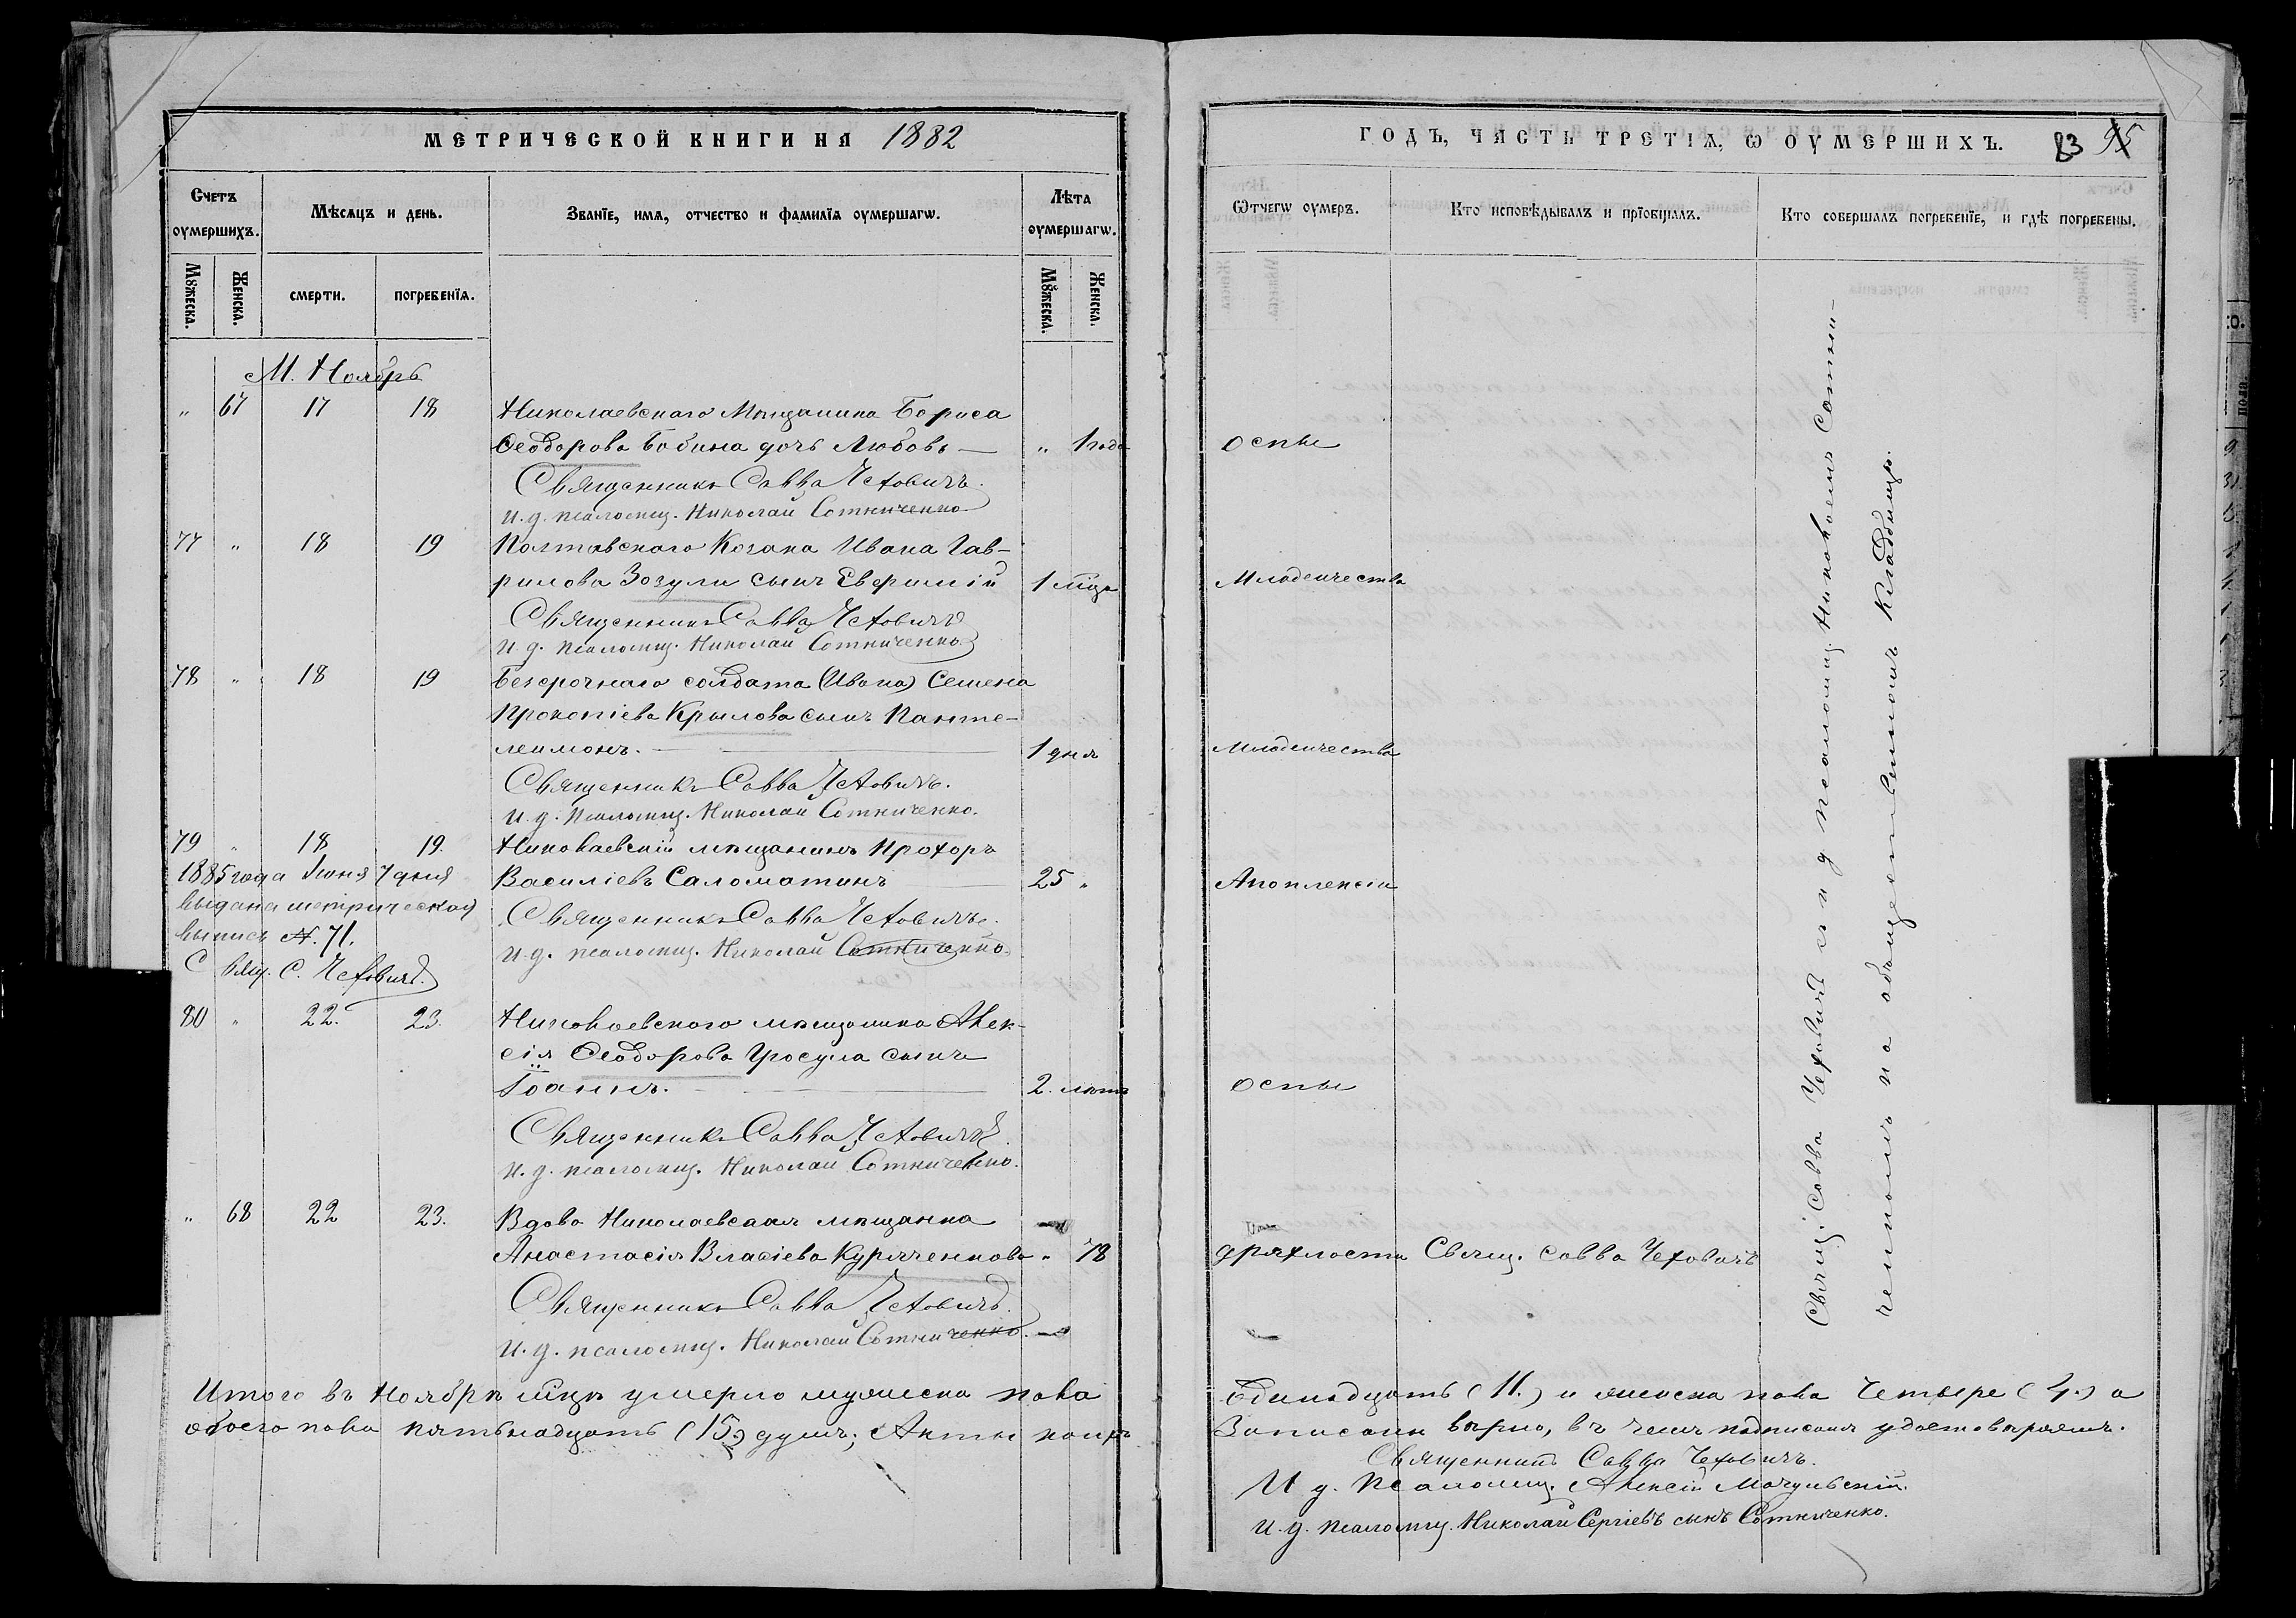 МЕТРИЧЕСКОЙ КНИГИ НА 1882
Счетъ оумершихъ.
Мѣсяцъ и день.
Званїе, имя, отчество и фамилїя оумершагѡ.
Лѣта оумершагѡ.
Мꙋжеска.
Женска.
смерти.
погребенїя.
Мꙋжеска.
Женска.
М. Ноябрь
" 67 17 18 Николаевскаго Мѣщанина Бориса
Ѳеодорова Бабина дочь Любовь — " 1 года
Священникъ Савва Чеховичъ.
И. д. псаломщ. Николай Сотниченко
77 " 18 19 Полтавскаго Козака Ивана Гав-
рилова Зозули сынъ Евфимій 1 мѣца
Священникъ Савва Чеховичъ
И. д. псаломщ. Николай Сотниченко.
78 " 18 19 Безсрочнаго солдата (Ивана) Семена
Прокопіева Крылова сынъ Панте-
леимонъ. — 1 дня
Священникъ Савва Чеховичъ.
И. д. псаломщ. Николай Сотниченко.
79 " 18 19. Николаевскій мѣщанинъ Прохоръ
Василіевъ Саломатинъ 25 "
Священникъ Савва Чеховичъ.
И. д. псаломщ. Николай Сотниченко.
1885 года Іюня 7 дня
выдана метрическая
выпись №. 71.
Свящ. С. Чеховичъ.
80 " 22. 23. Николаевскаго мѣщанина Алек-
сія Ѳеодорова Гросула сынъ
Іоаннъ. — 2. лѣтъ
Священникъ Савва Чеховичъ.
И. д. псаломщ. Николай Сотниченко.
" 68 22 23. Вдова Николаевская мѣщанка
Анастасія Власіева Курячекова " 78
Священникъ Савва Чеховичъ.
И. д. псаломщ. Николай Сотниченко.
Итого въ Ноябрѣ мѣцѣ умерло мужеска пола
обоего пола пятьнадцать (15.) душъ; Акты
ГОДЪ, ЧАСТЬ ТРЕТІЯ, Ѡ ОУМЕРШИХЪ. 83 95
Ѿчегѡ оумеръ.
Кто исповѣдывалъ и прїобщалъ.
Кто совершалъ погребенїе, и гдѣ погребены.
Оспы
Младенчества
Младенчества
Апоплексіи
Оспы
дряхлости Свящ. Савва Чеховичъ
Свящ. Савва Чеховичъ съ и д псаломщ. Николаемъ Сотни-
ченкомъ на общественномъ кладбищѣ.
Единадцать (11.) и женска пола Четыре (4.) а
Записаны вѣрно, въ чемъ подписомъ удостовѣряемъ.
Священникъ Савва Чеховичъ.
И д. Псаломщ. Алексій Мачульскій.
И. д. псаломщ. Николай Сергіевъ сынъ Сотниченко.